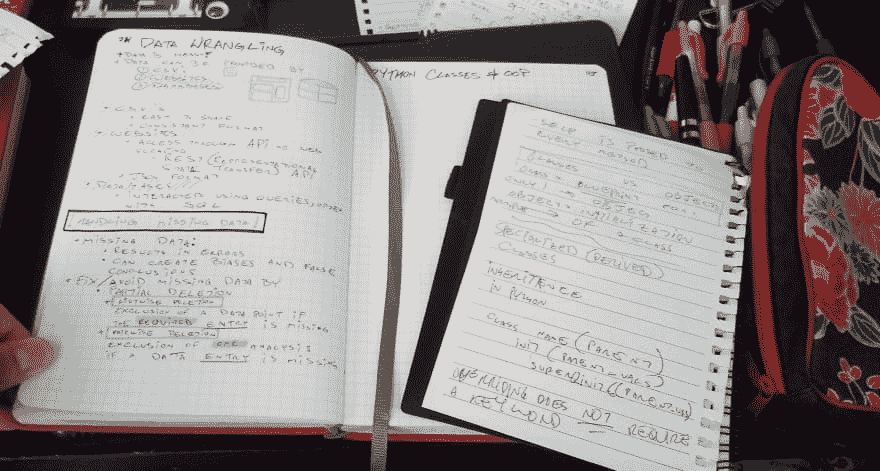 DATA WRANGLING
DATA IS MESSY!
DATA CAN BE PROVIDED BY
① CSV's
② WEBSITES
③ DATABASES
CSV's
EASY TO SHARE
CONSISTENT FORMAT
WEBSITES
ACCESS THROUGH API OR WEB
REST (REPRESENTATIONAL
STATE TRANSFER) API
JSON FORMAT
DATABASES
INTERACTED USING QUERIES
WITH SQL
HANDLING MISSING DATA!
MISSING DATA:
RESULTS IN ERRORS
CAN CREATE BIASES AND FALSE
CONCLUSIONS
FIX/AVOID MISSING DATA BY
PARTIAL DELETION
LISTWISE DELETION
EXCLUSION OF A DATA POINT IF
THE REQUIRED ENTRY IS MISSING
PAIRWISE DELETION
EXCLUSION OF ANALYSIS
IF A DATA ENTRY IS MISSING
PYTHON CLASSES & OOP
SELF IS PASSED TO
EVERY METHOD
CLASSES VS OBJECTS
CLASS = BLUEPRINT FOR
ONLY 1 → OBJECT
OBJECT = INITIALIZATION
OF A CLASS
SPECIALIZED (DERIVED)
CLASSES
INHERITENCE
IN PYTHON
CLASS NAME (PARENT)
INIT (PARENT VARS)
SUPER().INIT((PARENT VARS)
OVERRIDING DOES NOT REQUIRE
A KEYWORD